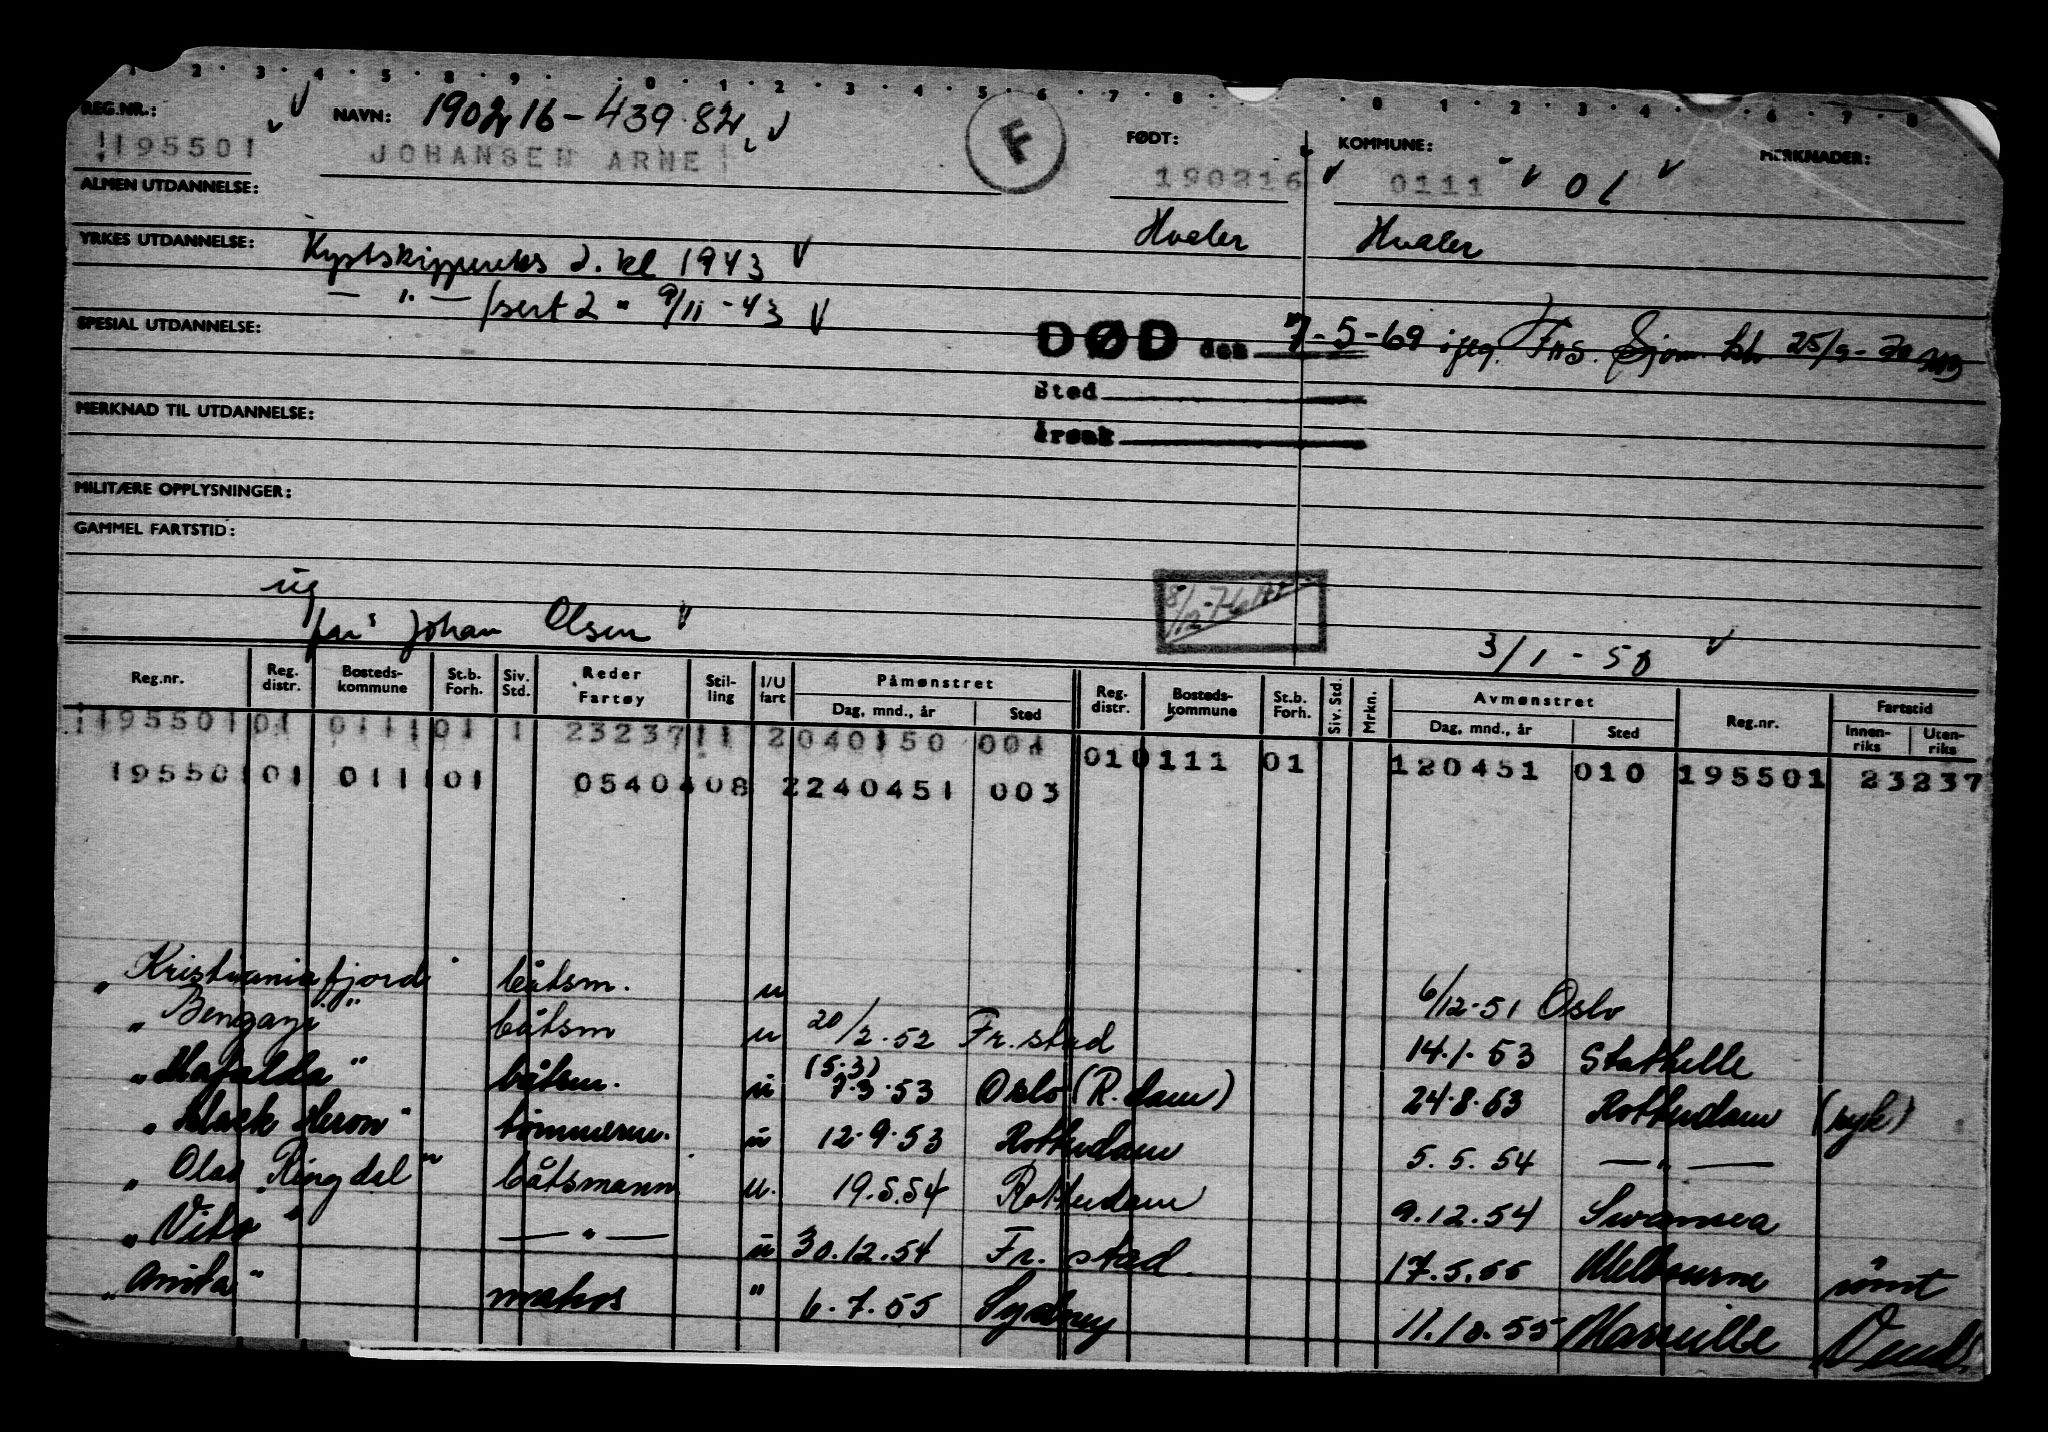 1 2 3 4 5 8 9 0 1 2 3 4 5 6 7 8 0 1 2 3 4 6 7 8
REG.NR.: NAVN: 190216-439.82 F FØDT: KOMMUNE: MERKNADER:
195501 JOHANSEN ARNE 190216 0111 01
ALMEN UTDANNELSE:
Hvaler Hvaler
YRKES UTDANNELSE: Kystskippereks 2. kl 1943
— " — sert 2 " 9/11-43
SPESIAL UTDANNELSE:
DØD den 7-5-69 iflg. Frs. Sjøm. 25/9-70
Sted
Årsak
MERKNAD TIL UTDANNELSE:
MILITÆRE OPPLYSNINGER:
GAMMEL FARTSTID:
ug
far: Johan Olsen 3/1-50
Reg.nr. Reg. distr. Bosteds-kommune St.b. Forh. Siv. Std. Reder Fartøy Stil-ling I/U fart Påmønstret Dag, mnd., år Sted Reg. distr. Bosteds-kommune St.b. Forh. Siv. Std. Mrkn. Avmønstret Dag, mnd., år Sted Reg.nr. Fartstid Innen-riks Uten-riks
195501 01 0111 01 1 23237 11 2 040150 004 01 0111 01 120451 010 195501 23237
195501 01 0111 01 0540408 2 240451 003
" Kristianiafjord " båtsm. u 6/12-51 Oslo
" Bengazi " båtsm u 20/2.52 Fr.stad 14.1.53 Stathelle
" Mafalda " båtsm. u (5.3) 7.3.53 Oslo (R.dam) 24.8.53 Rotterdam (syk)
" Black Heron " tømmerm. u 12.9.53 Rotterdam 5.5.54 — " —
" Olav Ringdal " båtsmann u. 19.5.54 Rotterdam 9.12.54 Swansea
" Vito " — " — u 30.12.54 Fr. stad. 17.5.55 Melbourne rømt
" Anita " matros " 6.7.55 Sydney 11.10.55 Marseille